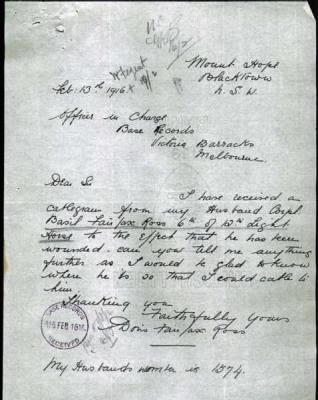 Mount Hope
Blacktown
N.S.W.
Feb. 13th 1916
Officer in Charge
Base Records
Victoria Barracks
Melbourne
Dear Sir
I have received a
cablegram from my Husband Corpl
Basil Fairfax Ross 6th of 12th Light
Horse to the effect that he has been
wounded. can you tell me anything
further as I would be glad to know
where he is so that I could cable to
him.
Thanking you
Faithfully yours
Doris Fairfax Ross
BASE RECORDS
FEB 1916
RECEIVED
My Husbands number is 1574.